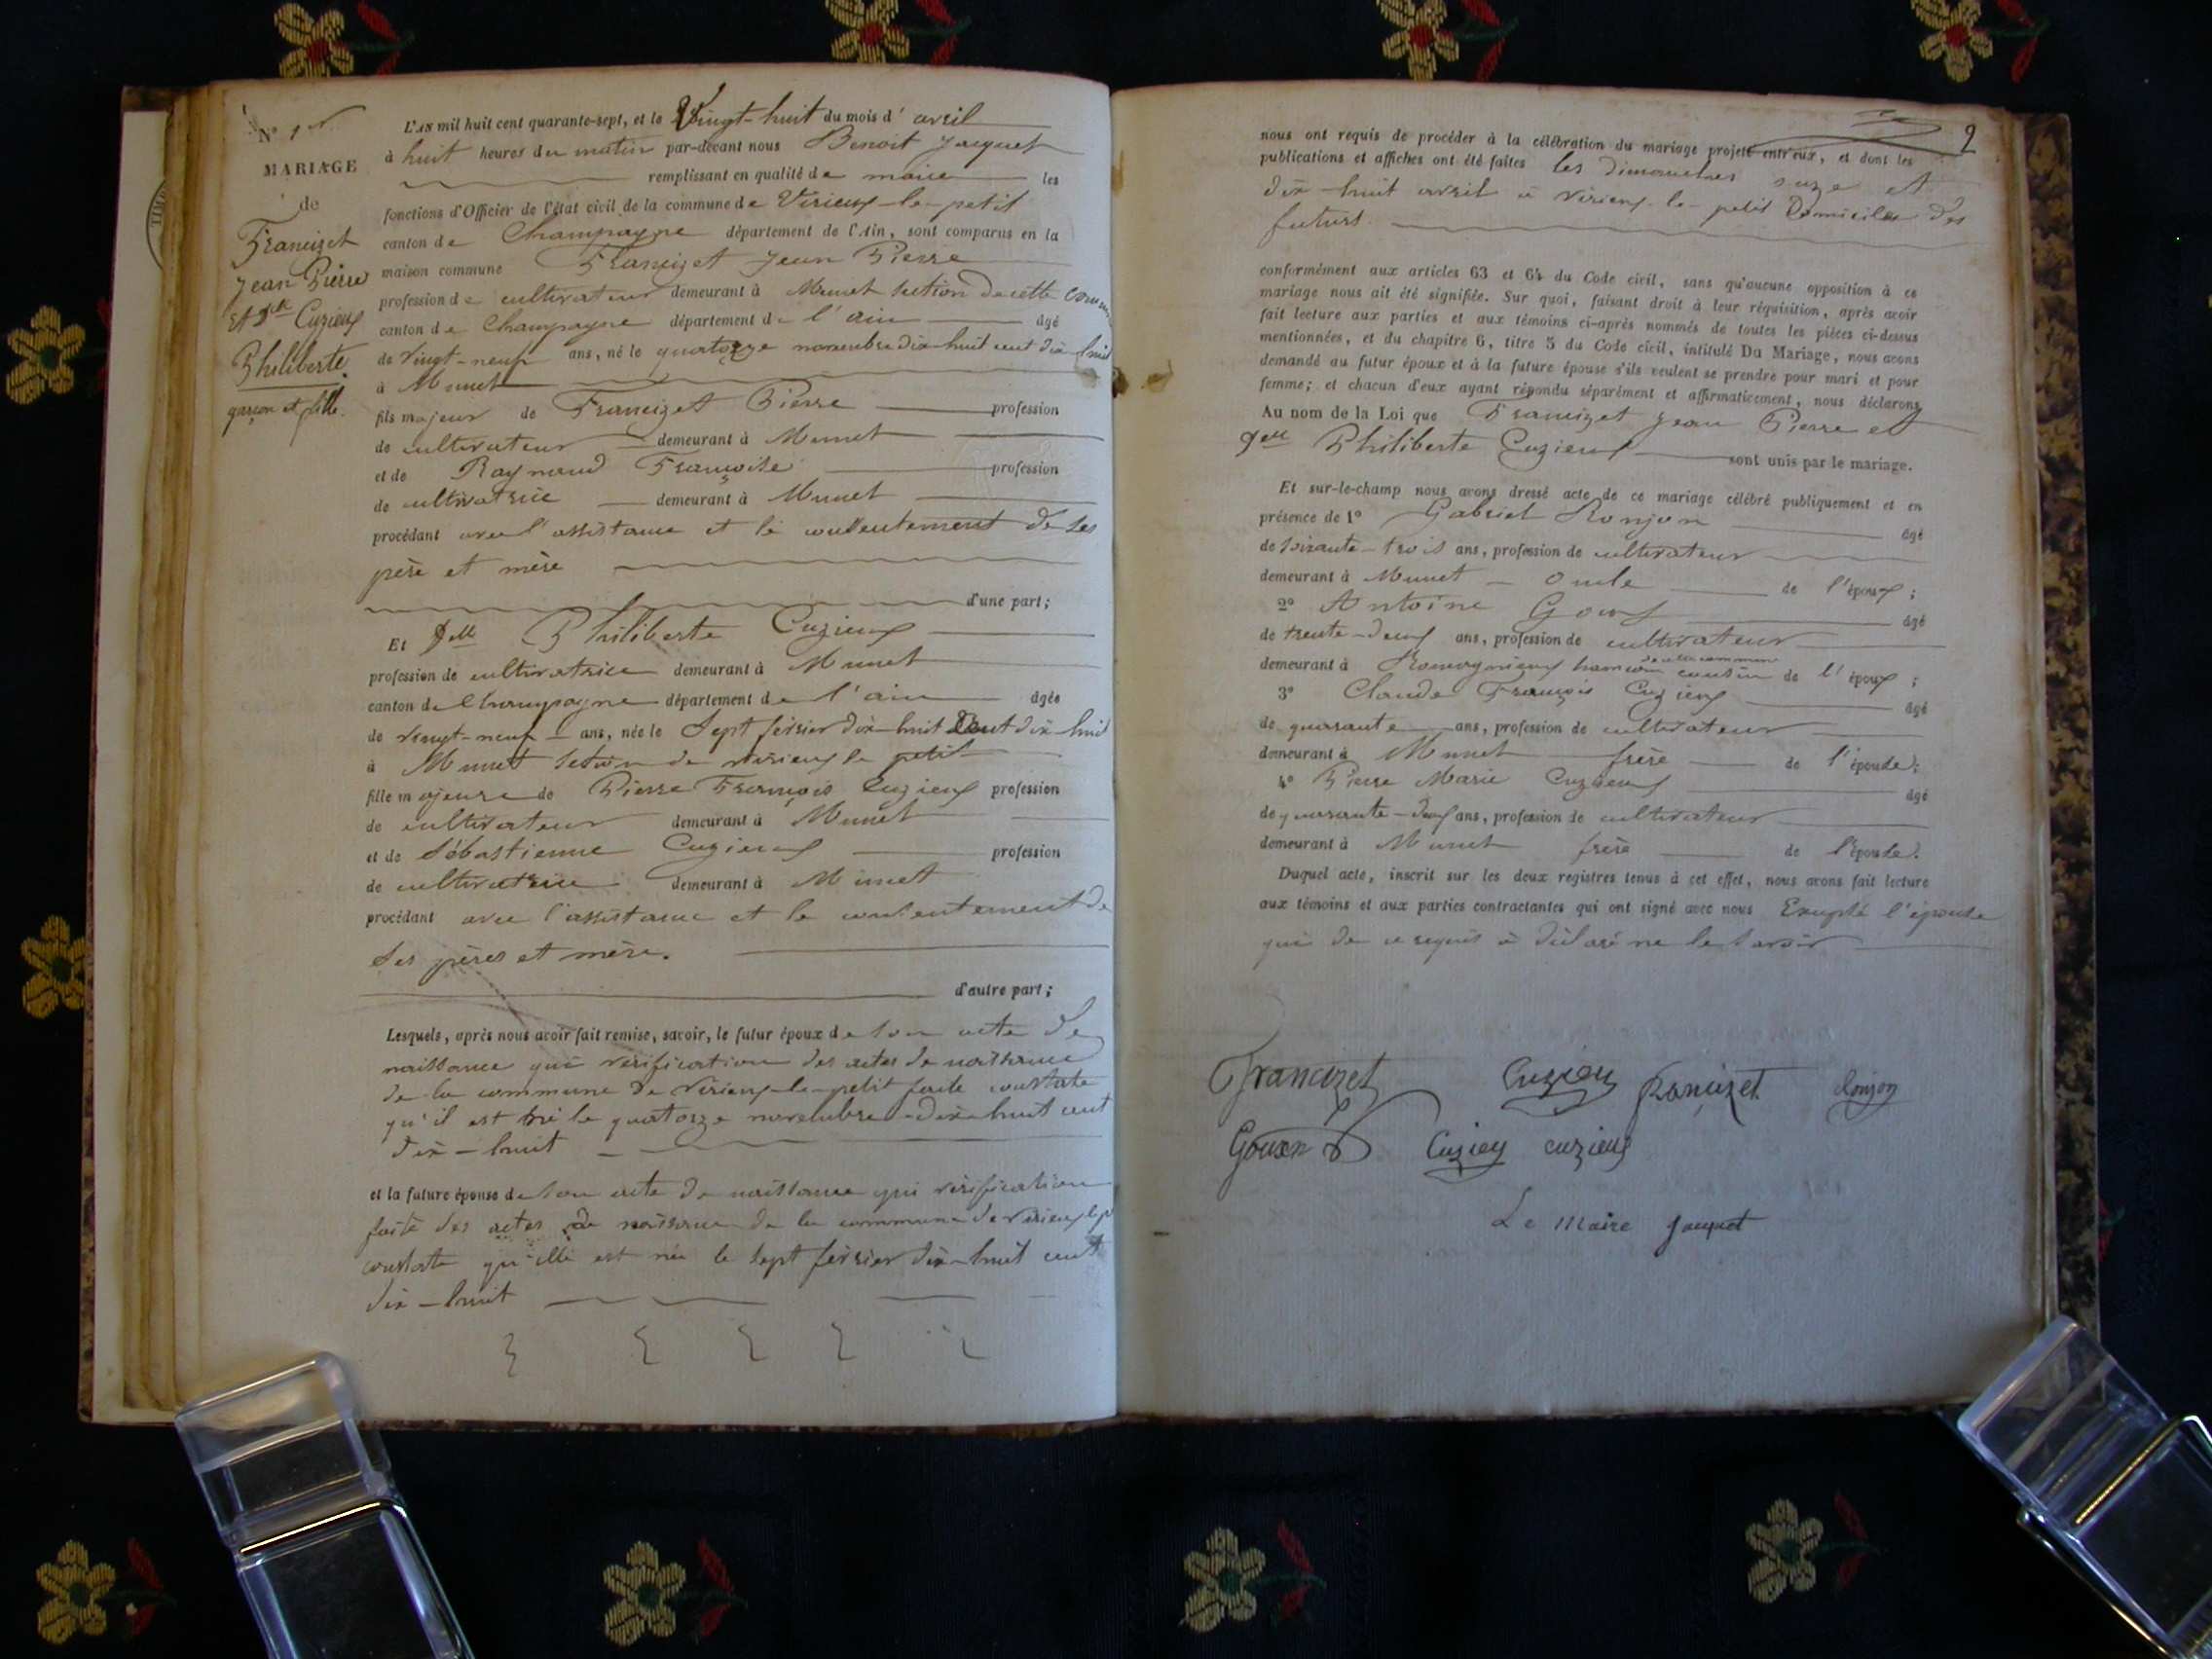 N° 1er
MARIAGE
de
Francizet
Jean Pierre
Et Dlle Cuzieux
Philiberte.
garçon et fille.
L'AN mil huit cent quarante-sept, et le Vingt-huit du mois d'avril
à huit heures du matin par-devant nous Benoit Jacquet
remplissant en qualité de maire les
fonctions d'Officier de l'état civil de la commune de Virieux-le-petit
canton de Champagne département de l'Ain, sont comparus en la
maison commune Francizet Jean Pierre
profession de cultivateur demeurant à Munet section de cette
canton de Champagne département de l'ain âgé
de vingt-neuf ans, né le quatorze novembre dix-huit cent dix-huit
à Munet
fils majeur de Francizet Pierre profession
de cultivateur demeurant à Munet
et de Raynaud Françoise profession
de cultivatrice demeurant à Munet
procédant avec l'assistance et le consentement de ses
père et mère
d'une part;
Et Dlle Philiberte Cuzieux
profession de cultivatrice demeurant à Munet
canton de Champagne département de l'ain âgée
de vingt-neuf ans, née le Sept février dix-huit Cent dix-huit
à Munet section de virieux le petit
fille majeure de Pierre François Cuzieux profession
de cultivateur demeurant à Munet
et de Sébastienne Cuzieux profession
de cultivatrice demeurant à Munet
procédant avec l'assistance et le consentement de
ses pères et mère.
d'autre part;
Lesquels, après nous avoir fait remise, savoir, le futur époux de son acte de
naissance qui vérification des actes de naissance
de la commune de Virieux-le-petit faite constate
qu'il est né le quatorze novembre dix-huit cent
dix-huit
et la future épouse de son acte de naissance qui vérification
faite des actes de naissance de la commune de Virieux le p
constate qu'elle est née le sept février dix-huit cent
dix-huit
2
nous ont requis de procéder à la célébration du mariage projeté entr'eux, et dont les
publications et affiches ont été faites les dimanches onze et
dix-huit avril à virieux-le-petit Domiciles des
futurs.
conformément aux articles 63 et 64 du Code civil, sans qu'aucune opposition à ce
mariage nous ait été signifiée. Sur quoi, faisant droit à leur réquisition, après avoir
fait lecture aux parties et aux témoins ci-après nommés de toutes les pièces ci-dessus
mentionnées, et du chapitre 6, titre 5 du Code civil, intitulé Du Mariage, nous avons
demandé au futur époux et à la future épouse s'ils veulent se prendre pour mari et pour
femme; et chacun d'eux ayant répondu séparément et affirmativement, nous déclarons
Au nom de la Loi que Francizet Jean Pierre et
Delle Philiberte Cuzieux sont unis par le mariage.
Et sur-le-champ nous avons dressé acte de ce mariage célébré publiquement et en
présence de 1° Gabriel Ronjon âgé
de soixante-trois ans, profession de cultivateur
demeurant à Munet oncle de l'époux;
2° Antoine Goux âgé
de trente-deux ans, profession de cultivateur
demeurant à de cette commune cousin de l'époux;
3° Claude François Cuzieux âgé
de quarante ans, profession de cultivateur
demeurant à Munet frère de l'épouse;
4° Pierre Marie Cuzieux âgé
de quarante-deux ans, profession de cultivateur
demeurant à Munet frère de l'épouse.
Duquel acte, inscrit sur les deux registres tenus à cet effet, nous avons fait lecture
aux témoins et aux parties contractantes qui ont signé avec nous Excepté l'épouse
qui de ce requis à déclaré ne le savoir
Francizet Cuzieu francizet Ronjon
Goux Cuziey cuzieux
Le Maire Jacquet